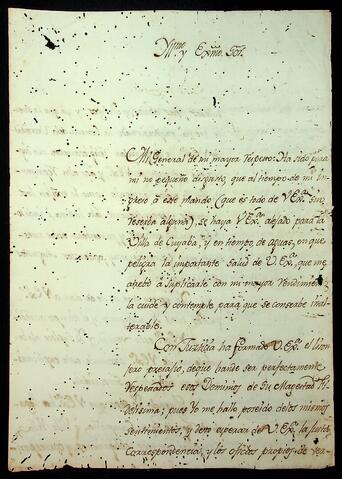 Yllmo. y Exmo. Sor.
Mi General de mi mayor respeto: Ha sido para
mi no pequeño disgusto, que al tiempo de mi in-
greso à este mando (que es todo de V. Exa. sin
reserba alguna), se haya V. Exa. alejado para la
Villa de Cuyaba, y en tiempo de aguas, en que
peligra la importante salud de V. Exa., que me
atrebo à suplicarle con mi mayor rendimiento
la cuide y contemple, para que se conserbe inal-
terable.
Con Justicia ha formado V. Exa. el
pero presajio, de que hande ser perfectamente
respetados esos Dominios de Su Magestad Fi-
delisima; pues Yo me hallo poseido delos mismos
sentimientos, y devo esperar de V. Exa. la justa
correspondencia, y los oficios propios de ver-